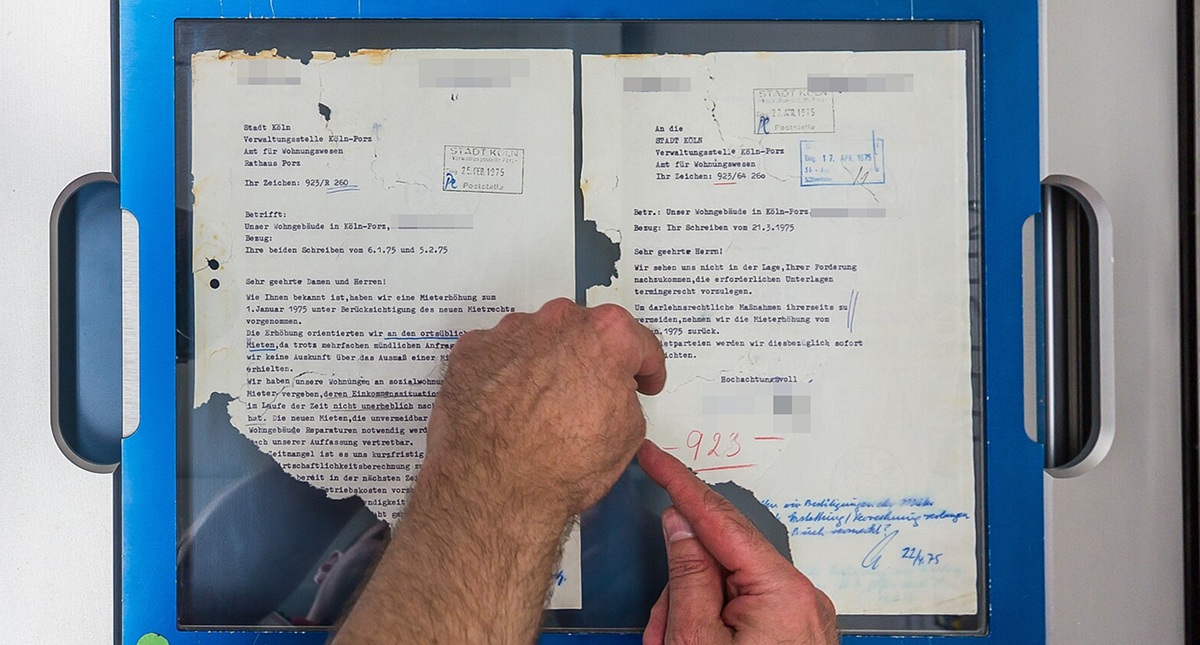 Stadt Köln
Verwaltungsstelle Köln-Porz
Amt für Wohnungswesen
Rathaus Porz
Ihr Zeichen: 923/R 260
STADT KÖLN
25.FEB.1975
Poststelle
Betrifft:
Unser Wohngebäude in Köln-Porz,
Bezug:
Ihre beiden Schreiben vom 6.1.75 und 5.2.75
Sehr geehrte Damen und Herren!
Wie Ihnen bekannt ist,haben wir eine Mieterhöhung zum
1.Januar 1975 unter Berücksichtigung des neuen Mietrechts
vorgenommen.
Die Erhöhung orientierten wir an den ortsüblich
Mieten,da trots mehrfachen mündlichen Anfrag
wir keine Auskunft über das Ausmaß einer Mi
erhielten.
Wir haben unsere Wohnungen an sozialwohnu
Mieter vergeben,deren Einkommensituation
im Laufe der Zeit nicht unerheblich nac
hat. Die neuen Mieten,die unvermeidbar
Wohngebäude Reparaturen notwendig werd
nach unserer Auffassung vertretbar.
Zeitmangel ist es uns kurzfristig
rtschaftlichkeitsberechnung z
bereit in der nächsten Zei
Betriebskosten vorz
ndigkeit
ht ga
An die
STADT KÖLN
Verwaltungsstelle Köln-Porz
Amt für Wohnungswesen
Ihr Zeichen: 923/64 260
STADT KÖLN
APR.1975
Poststelle
Eing. 17. APR. 1975
Betr.: Unser Wohngebäude in Köln-Porz,
Bezug: Ihr Schreiben vom 21.3.1975
Sehr geehrte Herrn!
Wir sehen uns nicht in der Lage,Ihrer Forderung
nachzukommen,die erforderlichen Unterlagen
termingerecht vorzulegen.
Um darlehnsrechtliche Maßnahmen ihrerseits zu
vermeiden,nehmen wir die Mieterhöhung vom
an.1975 zurück.
ietparteien werden wir diesbezüglich sofort
ichten.
Hochachtungsvoll
923
wir Bestätigungen der Mieter
Erstattung/Verrechnung verlangen
22/4.75